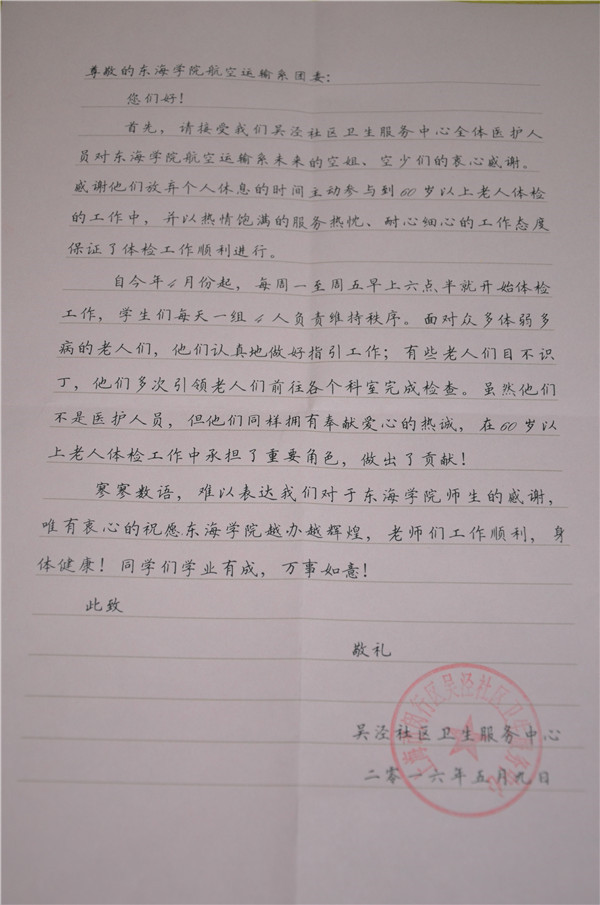 尊敬的东海学院航空运输系团委：
您们好！
首先，请接受我们吴泾社区卫生服务中心全体医护人
员对东海学院航空运输系未来的空姐、空少们的衷心感谢。
感谢他们放弃个人休息的时间主动参与到60岁以上老人体检
的工作中，并以热情饱满的服务热忱、耐心细心的工作态度
保证了体检工作顺利进行。
自今年4月份起，每周一至周五早上六点半就开始体检
工作，学生们每天一组4人负责维持秩序。面对众多体弱多
病的老人们，他们认真地做好指引工作；有些老人们目不识
丁，他们多次引领老人们前往各个科室完成检查。虽然他们
不是医护人员，但他们同样拥有奉献爱心的热诚，在60岁以
上老人体检工作中承担了重要角色，做出了贡献！
寥寥数语，难以表达我们对于东海学院师生的感谢，
唯有衷心的祝愿东海学院越办越辉煌，老师们工作顺利，身
体健康！同学们学业有成，万事如意！
此致
敬礼
上海市闵行区吴泾社区卫生服务中心
吴泾社区卫生服务中心
二零一六年五月九日